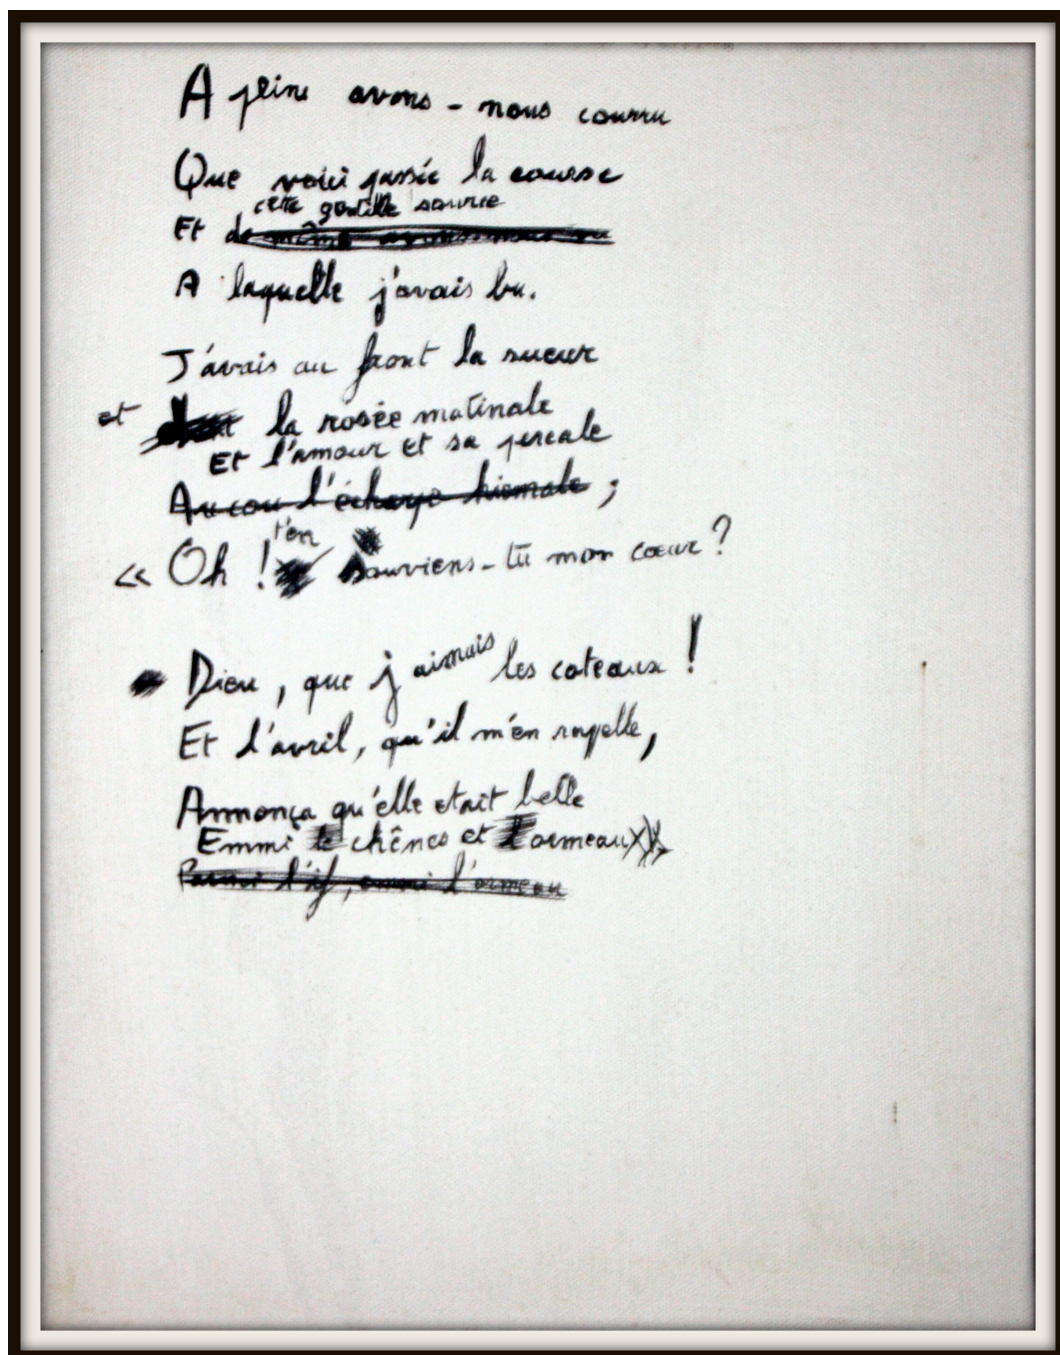 A peine avons-nous courru
Que voici passée la course
cette gentille source
Et de même
A laquelle j'avais bu.
J'avais au front la sueur
et la rosée matinale
Et l'amour et sa percale
Au cou l'écharpe hiemale ;
t'en
« Oh ! Souviens-tu mon cœur ?
Dieu, que j'aimais les coteaux !
Et l'avril, qu'il m'en rapelle,
Annonça qu'elle etait belle
Emmi le chênes et l'ormeaux »
Parmi l'if, emmi l'ormeau